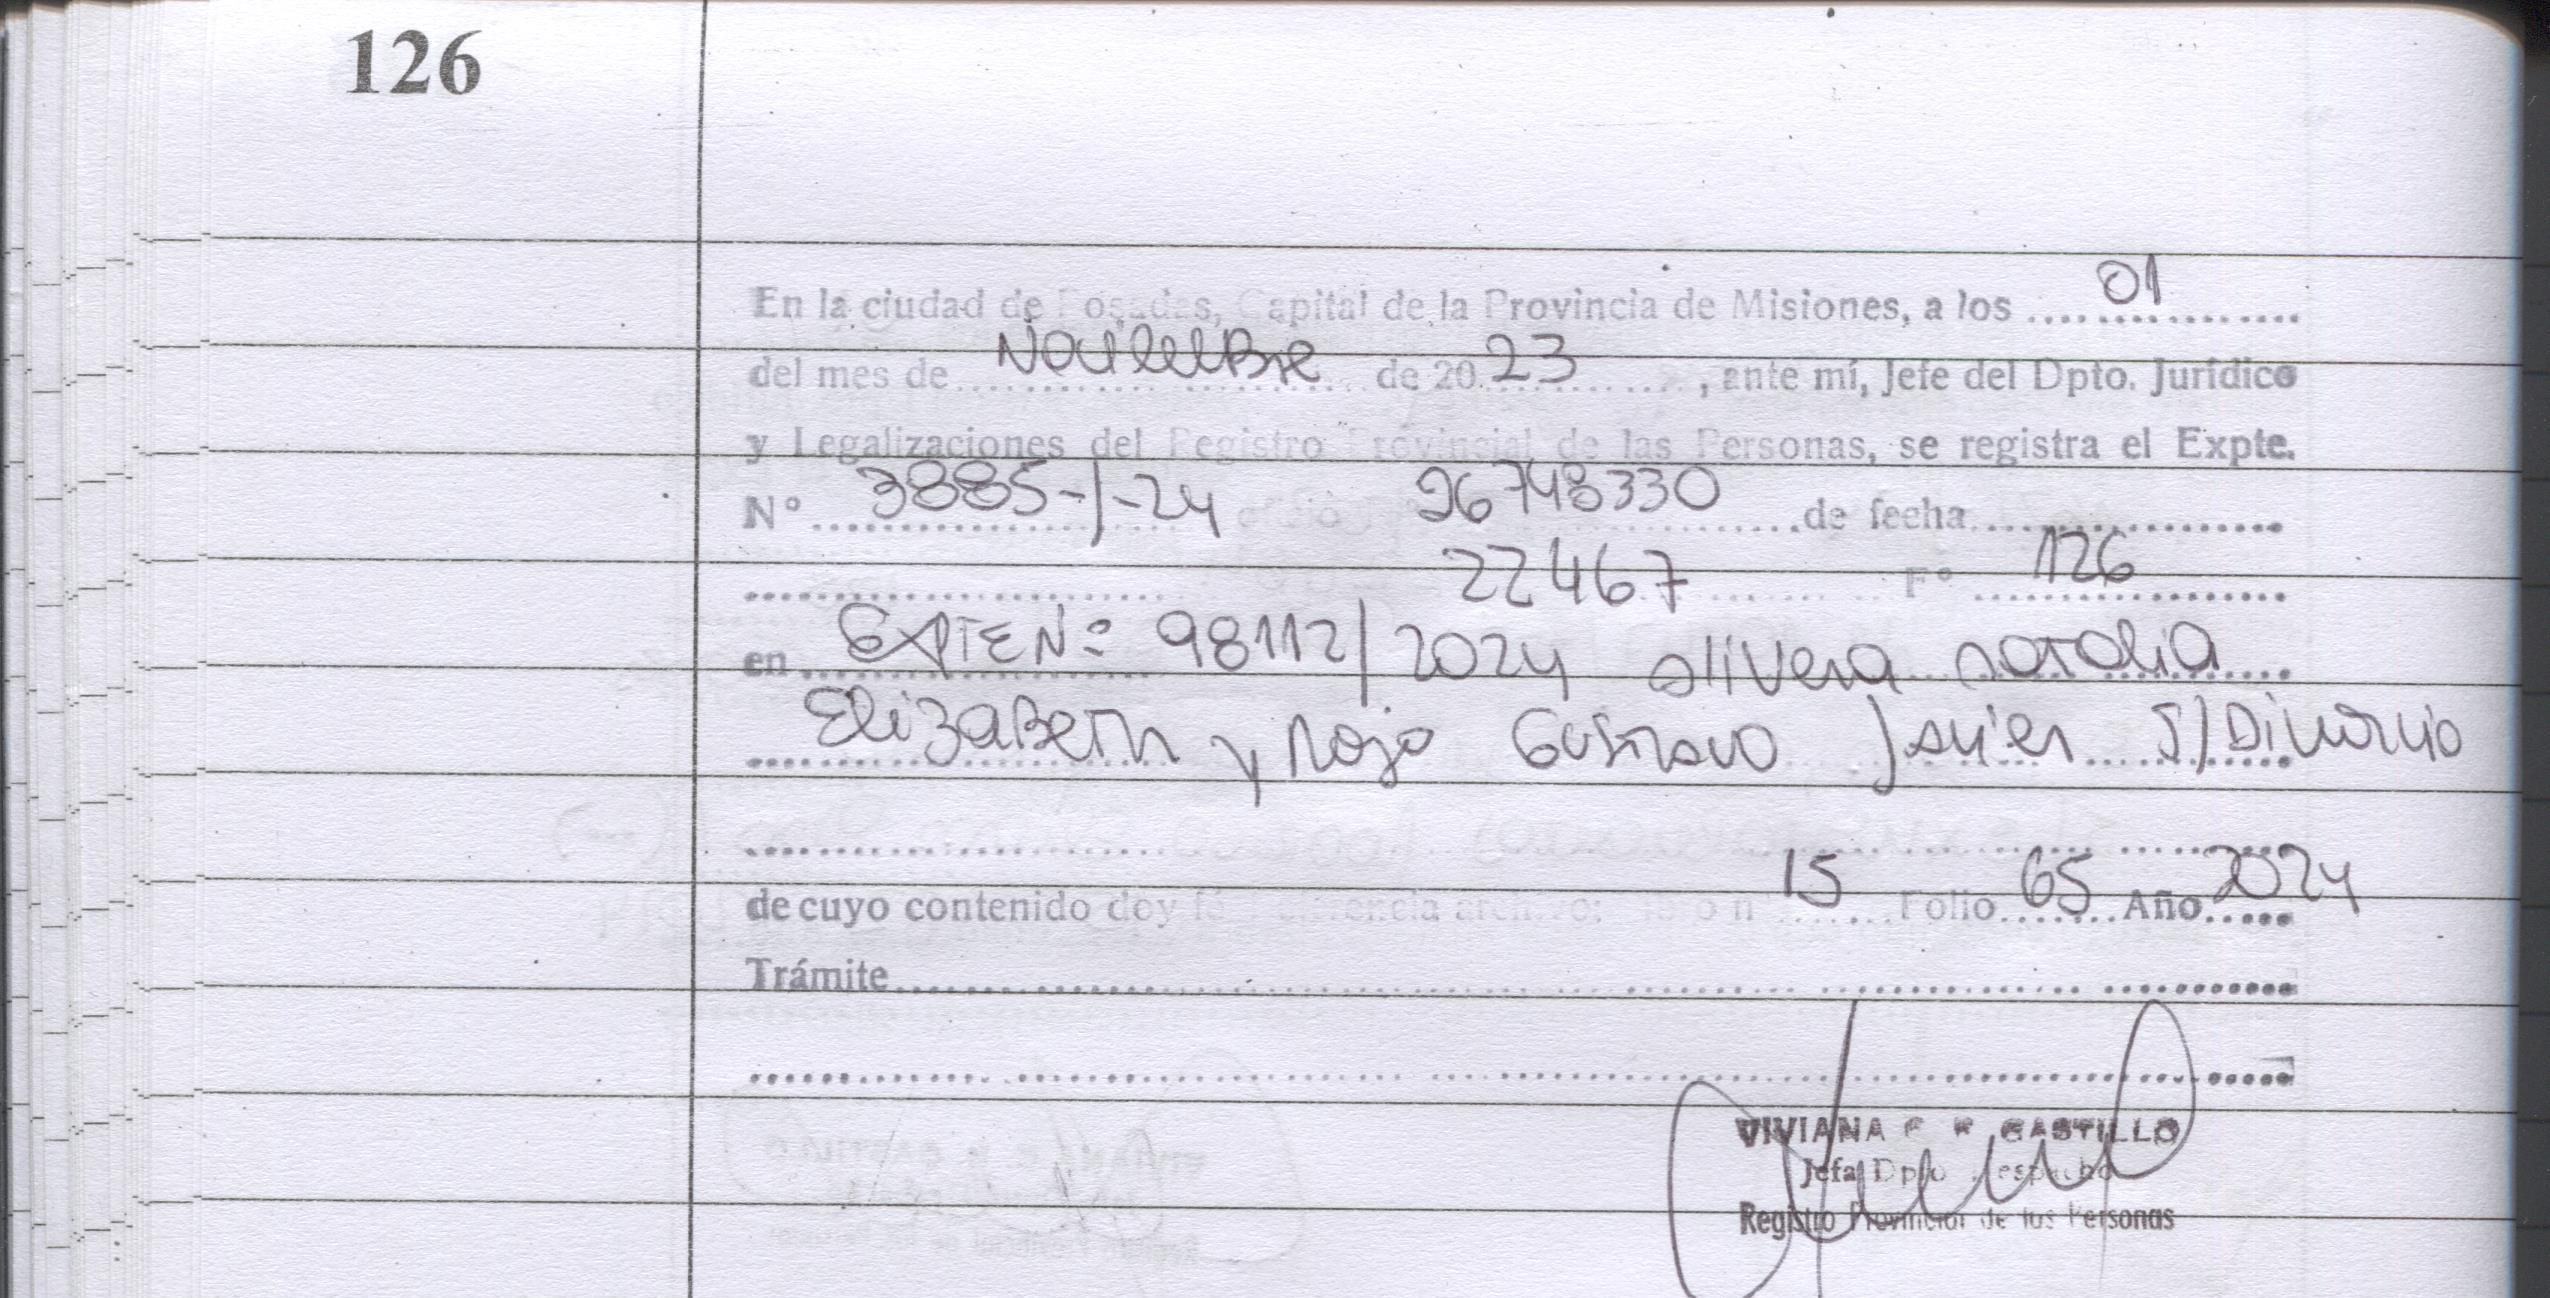 126
En la ciudad de Posadas, Capital de la Provincia de Misiones, a los 01
del mes de Noviembre de 20 23, ante mí, Jefe del Dpto. Jurídico
y Legalizaciones del Registro Provincial de las Personas, se registra el Expte.
Nº 3885-/-24 oficio 96748330 de fecha
22467 Fº 126
en EXPTE Nº 98112/2024 olivera natalia
Elizabeth y Rojo Gustavo Javier S/ Divorcio
de cuyo contenido doy fé 15 Folio 65 Año 2024
Trámite
VIVIANA CASTILLO
Jefa Dpto Despacho
Registro Provincial de las Personas